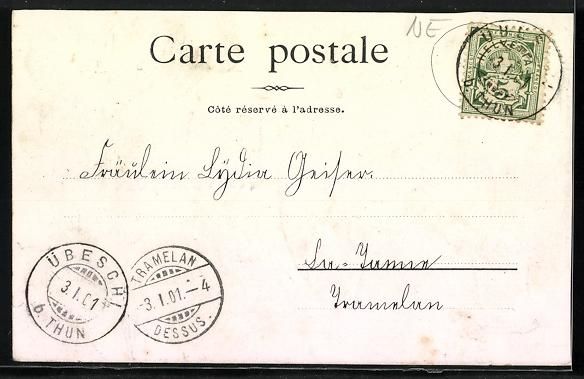 NE
Carte postale
Côté réservé à l'adresse.
HELVETIA
b. THUN
Fräulein Lydia Geiser.
La-Tanne
Tramelan
ÜBESCHI
3.I.01
b. THUN
TRAMELAN
-3.I.01.-4
DESSUS.